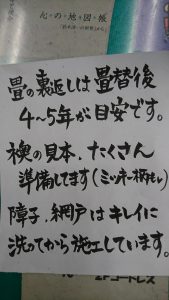 んの地図帳
畳の裏返しは畳替後
4～5年が目安です。
襖の見本、たくさん
準備してます(ミッキー柄もレ)
障子、網戸はキレイに
洗ってから施工しています。
コードレス